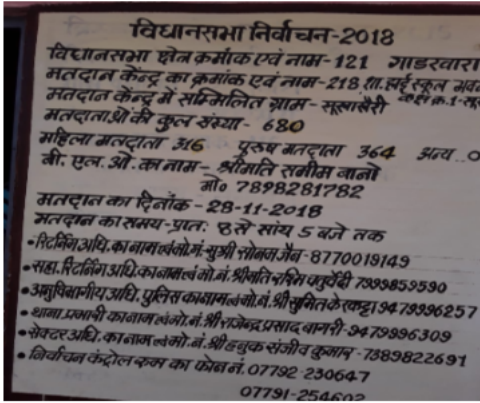 विधानसभा निर्वाचन-2018
विधानसभा क्षेत्र क्रमांक एवं नाम-121 गाडरवारा
मतदान केन्द्र का क्रमांक एवं नाम-218 शा. हाई स्कूल भवन
मतदान केन्द्र में सम्मिलित ग्राम-सूखाखैरी कक्ष क्र.1-
मतदाताओ की कुल संख्या- 680
महिला मतदाता 316 पुरुष मतदाता 364 अन्य..0
बी. एल. ओ. का नाम- श्रीमति समीम बानो
मो० 7898281782
मतदान का दिनांक - 28-11-2018
मतदान का समय-प्रातः 8 से सांय 5 बजे तक
• रिटर्निंग अधि. का नाम एवं मो.नं. सुश्री सोनम जैन-8770019149
• सहा. रिटर्निंग अधि. का नाम एवं मो.नं. श्रीमति रश्मि चतुर्वेदी 7999859590
• अनुविभागीय अधि. पुलिस का नाम एवं मो.नं. श्री सुमित केरकट्टा 9479996257
• थाना प्रभारी का नाम एवं मो.नं. श्री राजेन्द्र प्रसाद बागरी-9479996309
• सेक्टर अधि. का नाम एवं मो.नं. श्री हनुक संजीव कुमार-7389822691
• निर्वाचन कंट्रोल रूम का फोन नं. 07792-230647
07791-254602